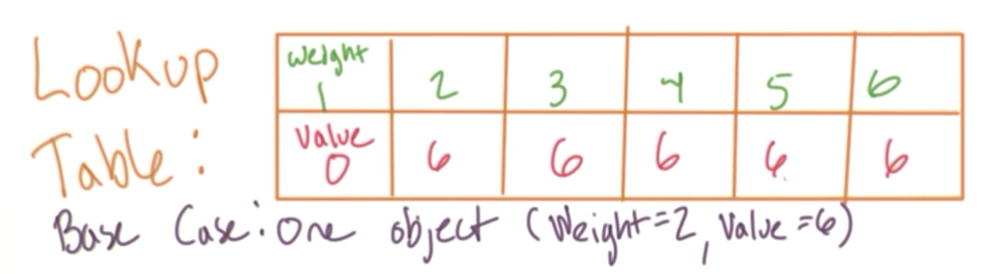 Lookup
Table:
Weight
1 2 3 4 5 6
Value
0 6 6 6 6 6
Base Case: One object (Weight=2, Value=6)